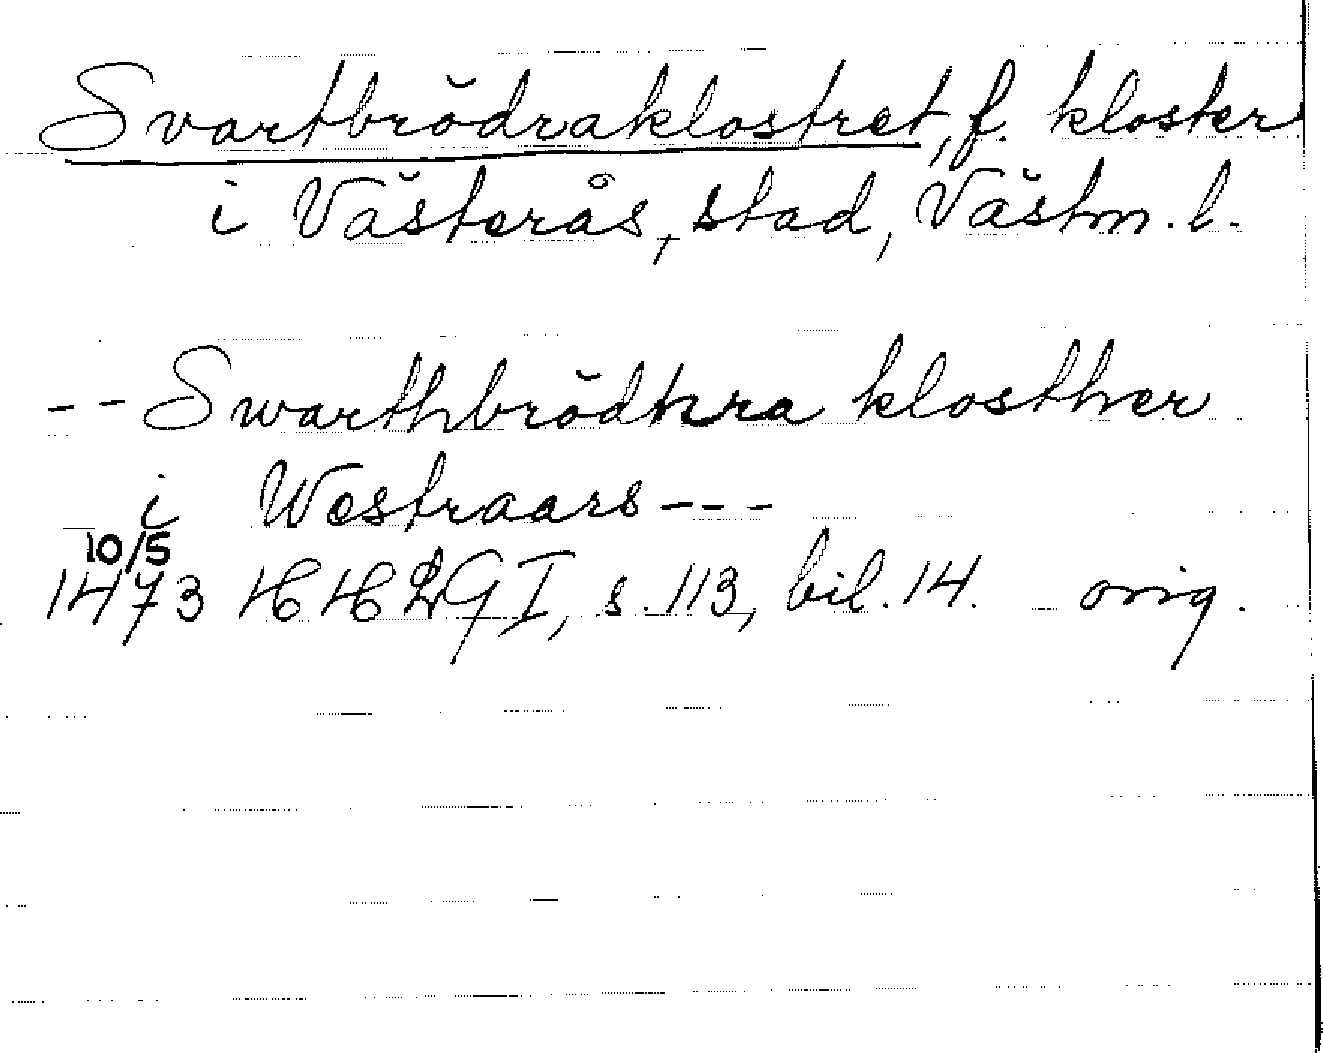 Svartbrödraklostret, f. kloster
i Västerås, stad, Västm. l.
-- Swarthbrödhra klosther
i Westraars ---
10/5
1473 HHLG I, s. 113, bil. 14. orig.